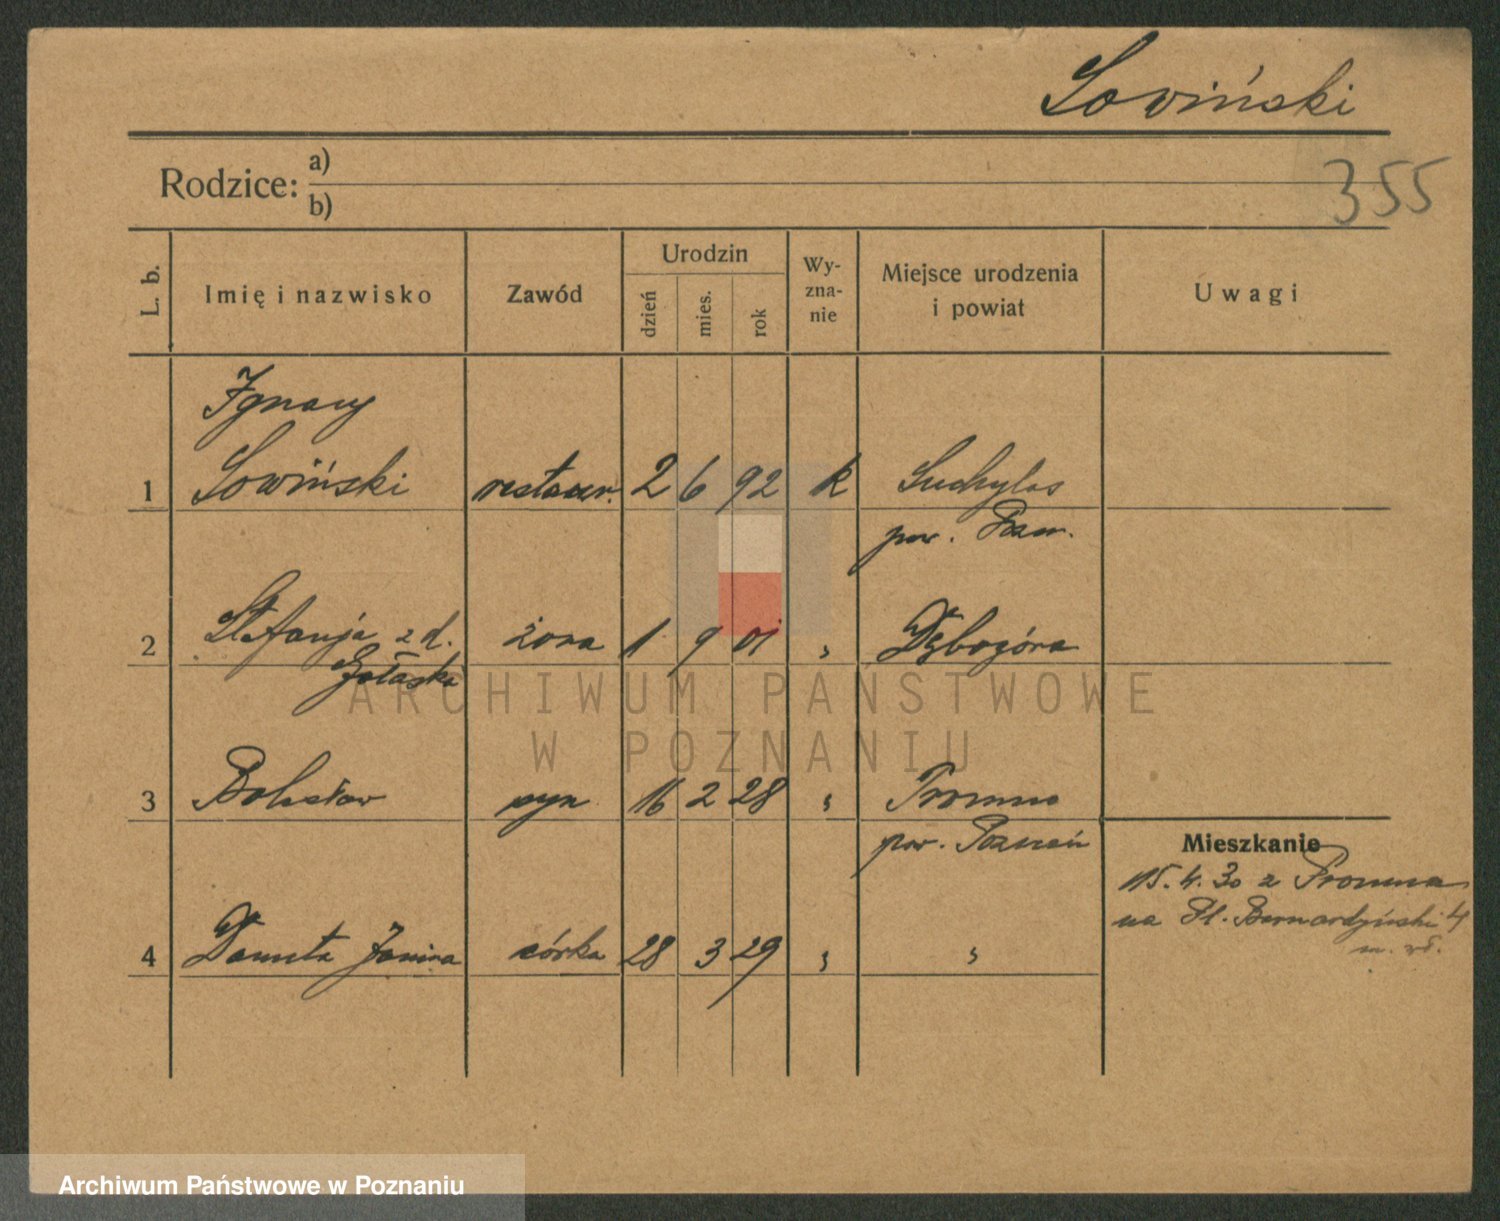 Lowiński
Rodzice: a)
b)
355
L. b. Imię i nazwisko Zawód Urodzin dzień mies. rok Wy-zna-nie Miejsce urodzenia i powiat Uwagi
Ignacy
1 Lowiński restaur. 2 6 92 k Suchylas
pow. Pozn.
2 Stefanja z d. żona 1 9 01 " Dębogóra
Gołaska
3 Bolesław syn 16 2 28 " Promno
pow. Poznań
Mieszkanie
15.4.30 z Promna
na Pl. Bernardyński 4
4 Danuta Janina córka 28 3 29 " "
m. wł.
ARCHIWUM PAŃSTWOWE
W POZNANIU
Archiwum Państwowe w Poznaniu